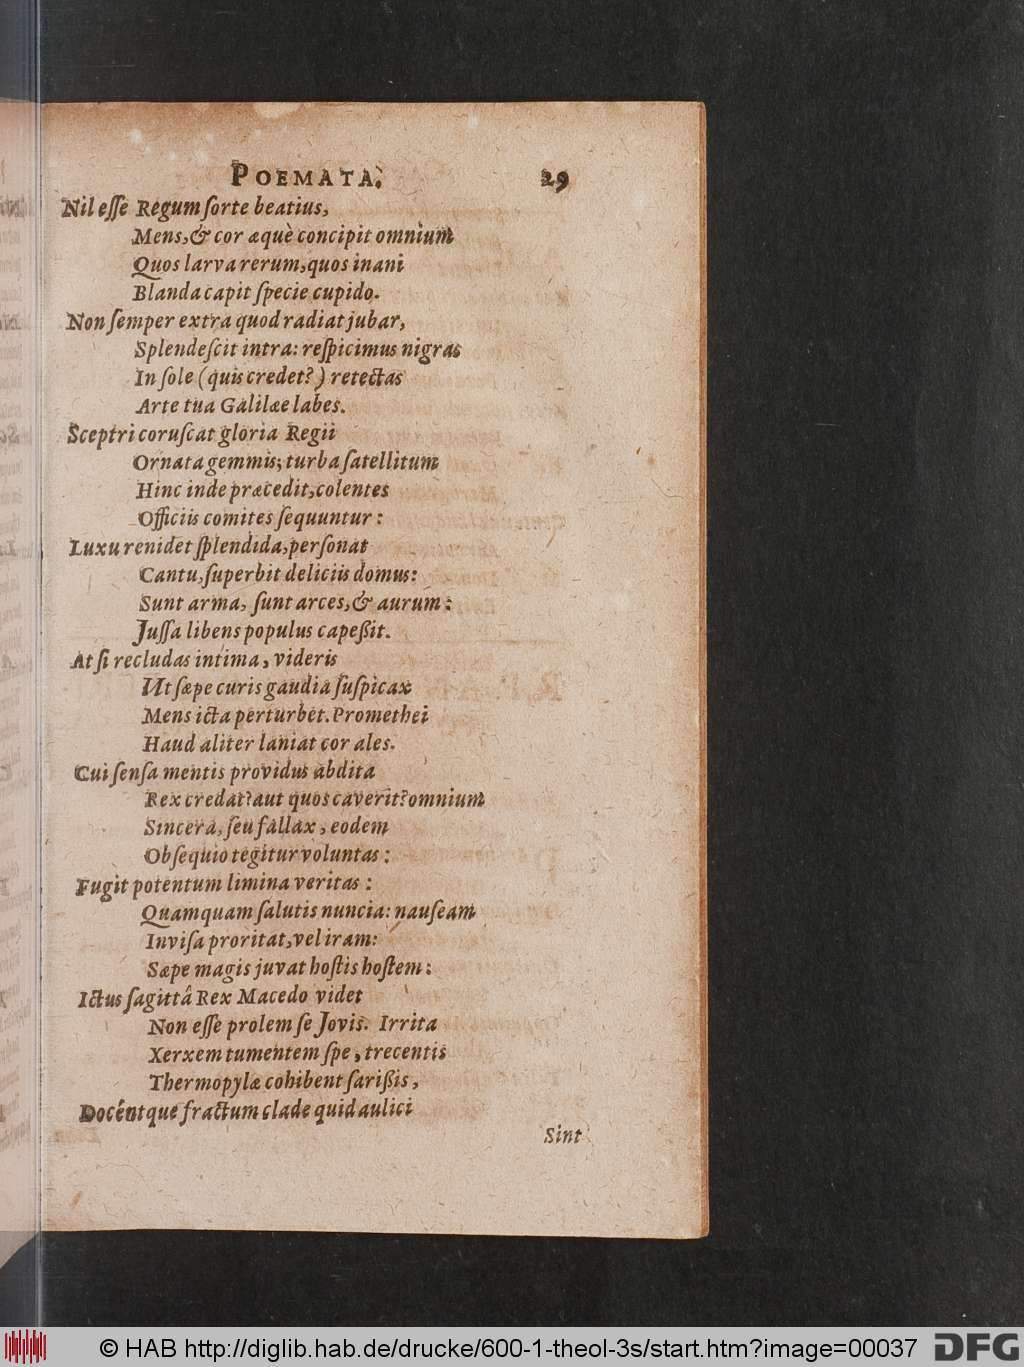 POEMATA. 29
Nil eſſe Regum ſorte beatius,
Mens, & cor æquè concipit omnium
Quos larva rerum, quos inani
Blanda capit ſpecie cupido.
Non ſemper extra quod radiat jubar,
Splendeſcit intra: reſpicimus nigras
In ſole (quis credet?) retectas
Arte tua Galilæe labes.
Sceptri coruſcat gloria Regii
Ornata gemmis; turba ſatellitum
Hinc inde præcedit, colentes
Officiis comites ſequuntur:
Luxu renidet ſplendida, perſonat
Cantu, ſuperbit deliciis domus:
Sunt arma, ſunt arces, & aurum:
Juſſa libens populus capeßit.
At ſi recludas intima, videris
Ut ſæpe curis gaudia ſuſpicax
Mens icta perturbet. Promethei
Haud aliter laniat cor ales.
Cui ſenſa mentis providus abdita
Rex credat? aut quos caverit? omnium
Sincera, ſeu fallax, eodem
Obſequio tegitur voluntas:
Fugit potentum limina veritas:
Quamquam ſalutis nuncia: nauſeam
Inviſa proritat, vel iram:
Sæpe magis juvat hoſtis hoſtem:
Ictus ſagittâ Rex Macedo videt
Non eſſe prolem ſe Jovis. Irrita
Xerxem tumentem ſpe, trecentis
Thermopylæ cohibent ſarißis,
Docentque fractum clade quid aulici
Sint
© HAB http://diglib.hab.de/drucke/600-1-theol-3s/start.htm?image=00037 DFG